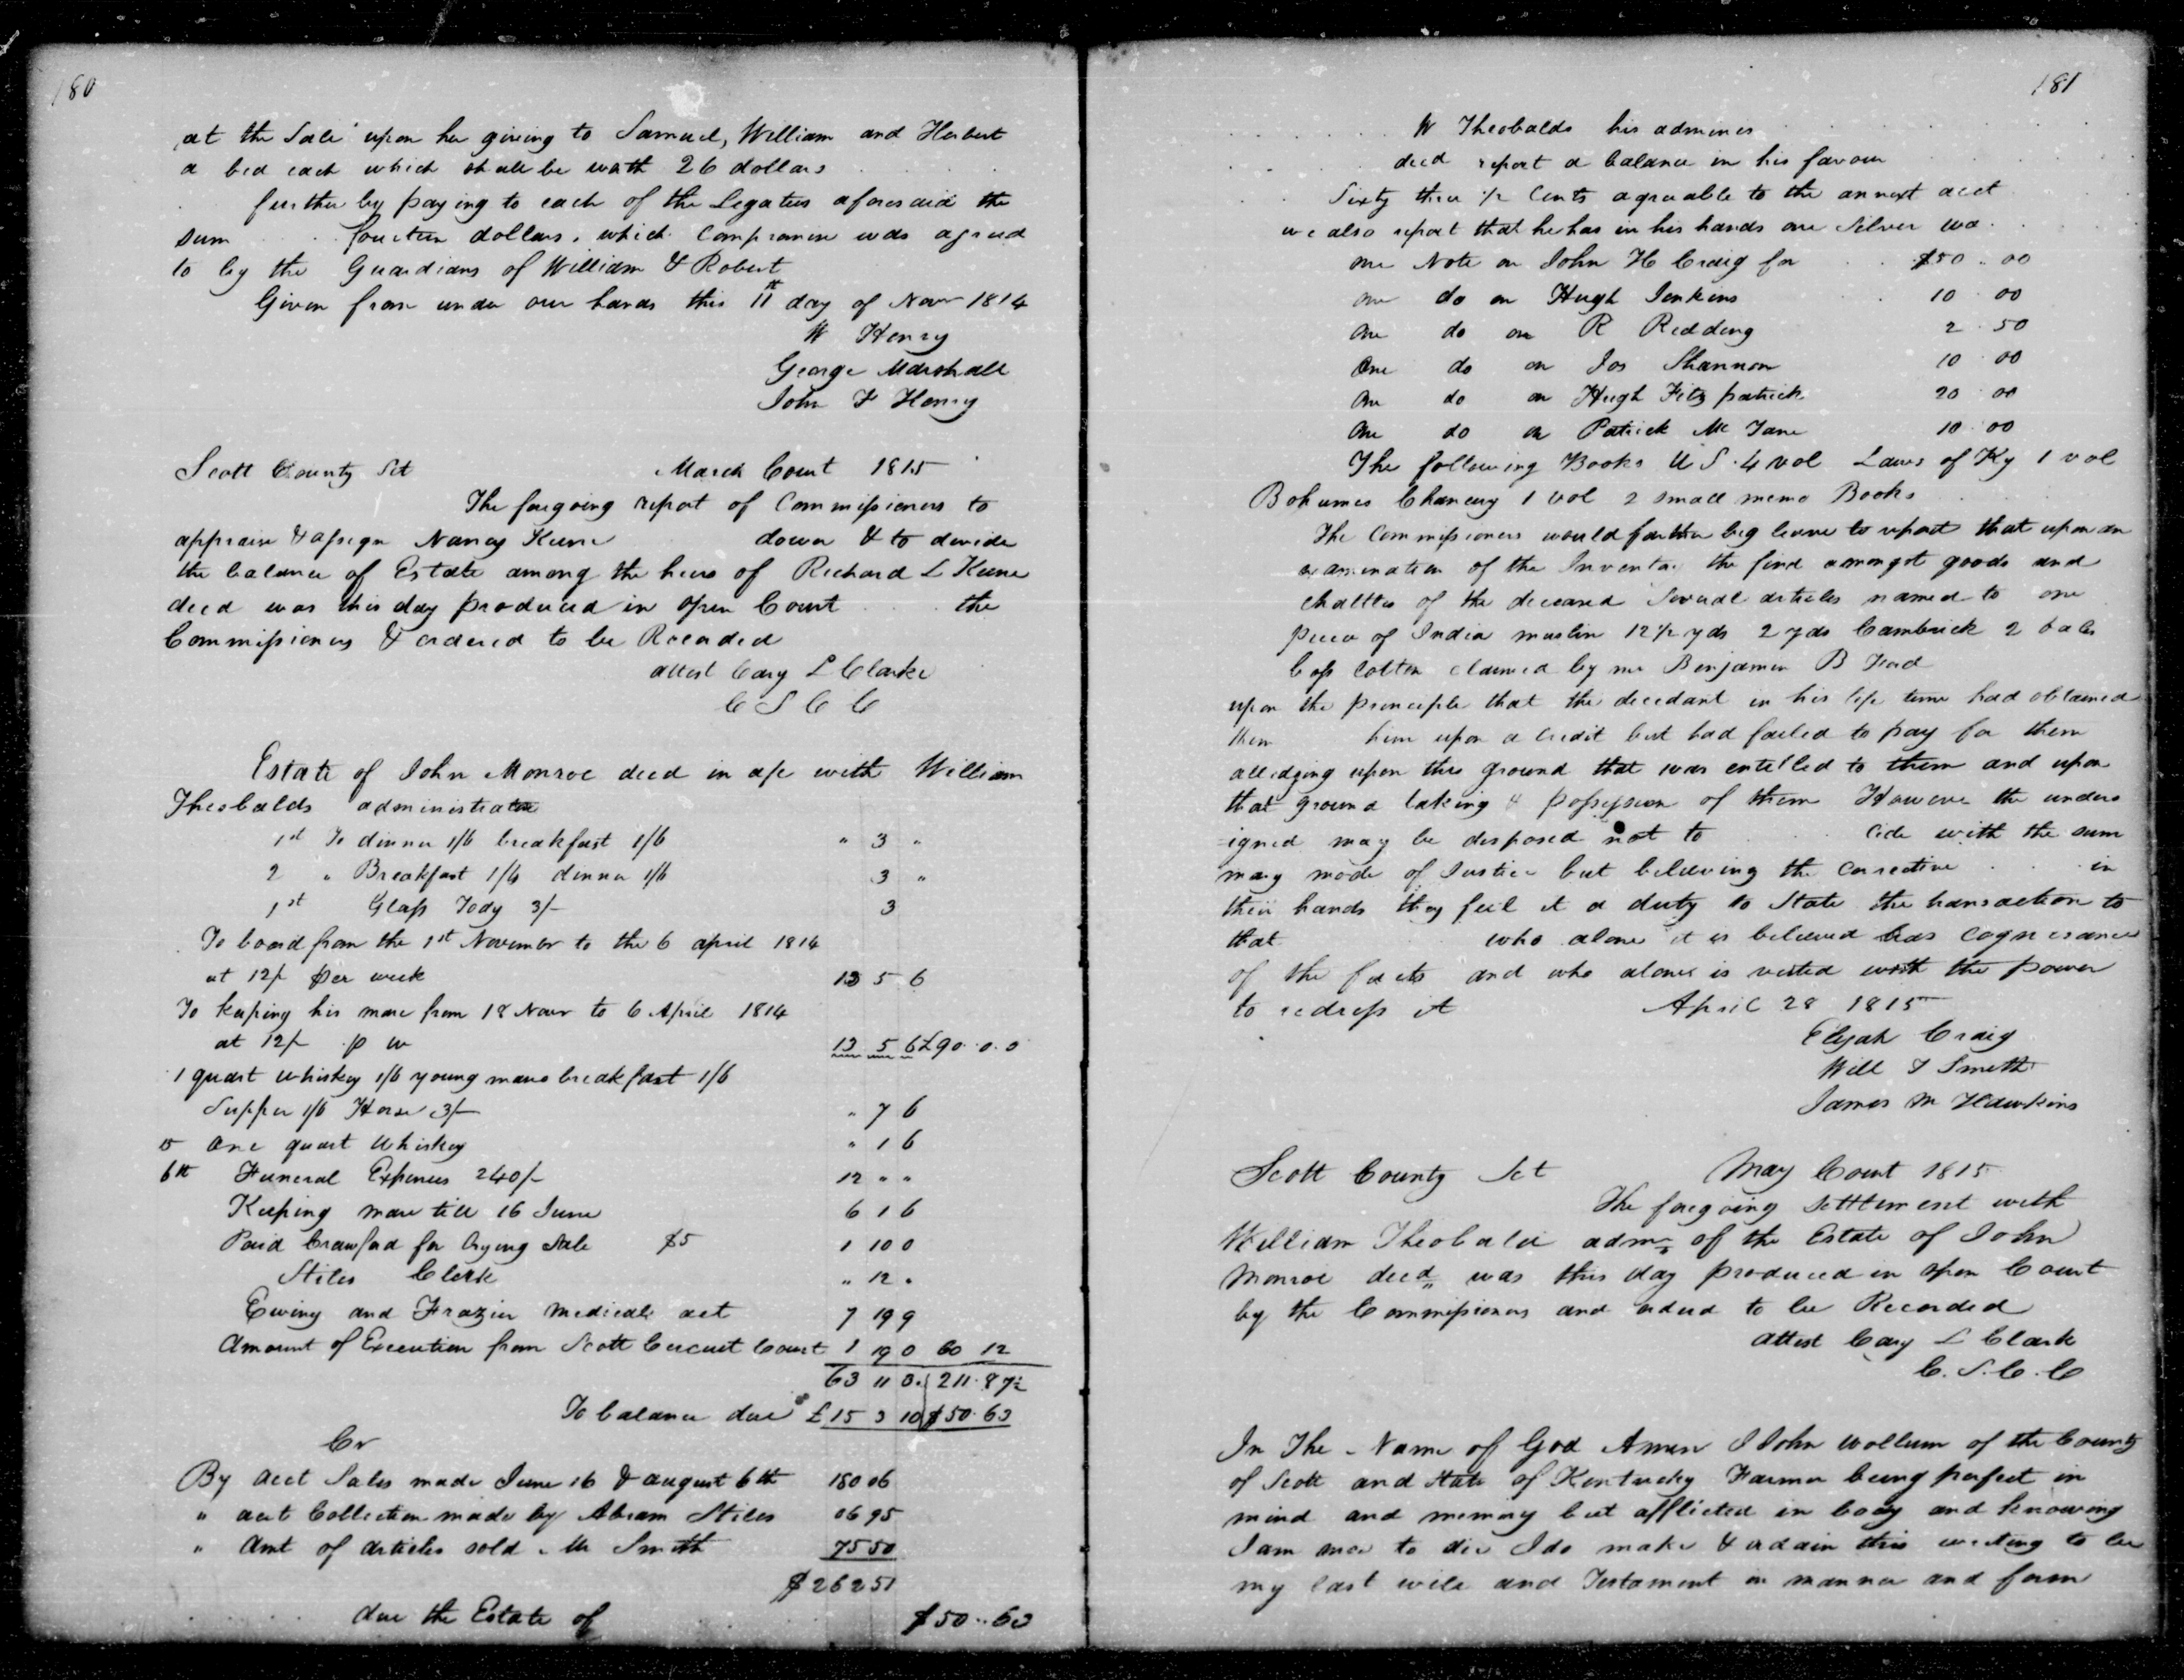 180
at the Sale upon her giving to Samuel, William and Herbert
a bed each which shall be worth 26 dollars
further by paying to each of the Legatees aforesaid the
sum fourteen dollars, which Compromise was agreed
to by the Guardians of William & Robert
Given from under our hands this 11th day of Novr 1814
W Henry
George Marshall
John F Henry
Scott County Sct March Court 1815
The foregoing report of Commissioners to
appraise & assign Nancy Keene dower & to devide
the balance of Estate among the heirs of Richard L Keene
decd was this day produced in open Court the
Commissioners & ordered to be Recorded
attest Cary L Clarke
C S C C
Estate of John Monroe decd in a/c with William
Theobalds administrator
1st To dinner 1/6 breakfast 1/6 " 3 "
2 " Breakfast 1/6 dinner 1/6 3 "
1st Glass Tody 3/- 3
To board from the 1st November to the 6 april 1814
at 12/ per week 13 5 6
To keeping his mare from 18 Novr to 6 April 1814
at 12/- p w 13 5 6 £90. 0. 0
1 quart whiskey 1/6 young mans breakfast 1/6
Supper 1/6 Horse 3/- " 7 6
15 one quart Whiskey " 1 6
6th Funeral Expenses 240/- 12 " "
Keeping mare till 16 June 6 1 6
Paid Crawford for Crying Sale $5 1 10 0
Stiles Clerk " 12 "
Ewing and Frazier Medical act 7 19 9
Amount of Execution from Scott Cercuet Court 1 19 0 60 12
63 11 3. 211.87½
To balance due £15 3 10 $50.63
Cr
By acct Sales made June 16 & august 6th 180 06
" acct Collection made by Abram Stiles 06 95
" Amt of articles sold Mr Smith 75 50
$262 51
due the Estate of $50..63
181
W Theobalds his admines
decd report a balance in his favour
Sixty three ½ Cents agreable to the annext acct
we also report that he has in his hands one Silver wa
one Note on John H Craig for $50 .. 00
one do on Hugh Jenkins 10 00
one do on R Redding 2 . 50
One do on Jos Shannon 10 00
One do on Hugh Fitzpatrick 20 00
One do on Patrick Mc Tane 10 00
The following Books U S . 4 vol Laws of Ky 1 vol
Bohumes Chancuy 1 vol 2 small memo Books
The Commissioners would farther beg leave to report that upon an
examination of the Inventa the find amongst goods and
chattles of the deceased Several articles named to one
piece of India muslin 12½ yds 2 yds Cambrick 2 bales
Coss Cotton claimed by mr Benjamin B Ford
upon the principle that the decedant in his life time had obtained
them him upon a Credit but had failed to pay for them
alledging upon this ground that was entitled to them and upon
that ground taking & possession of them However the unders
igned may be disposed not to cide with the sum
mary mode of Justice but believing the Corrective in
their hands they feel it a duty to State the transaction to
that who alone it is believed has Cognisance
of the facts and who alone is vested with the power
to redress it April 28 1815
Elijah Craig
Will T Smith
James M Hawkins
Scott County Sct May Court 1815
The foregoing Settlement with
William Theobald admr of the Estate of John
Monroe decd was this day produced in open Court
by the Commissioners and ordered to be Recorded
attest Cary L Clark
C. S. C. C
In The Name of God Amen I John Wollum of the County
of Scott and State of Kentucky Farmer being perfect in
mind and memory but afflicted in body and knowing
I am now to die I do make & ordain this writing to be
my last will and Testament in manner and form